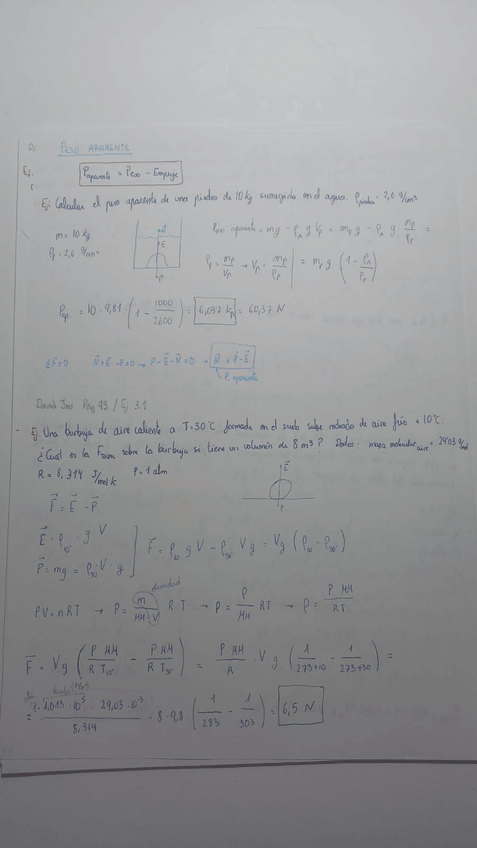 PESO APARENTE
P aparente = Peso - Empuje
Ej: Calcular el peso aparente de una piedra de 10 kg sumergida en el agua. ρ piedra = 2,6 g/cm³
m = 10 kg
ρp = 2,6 g/cm³
Peso aparente = mg - ρA g Vp = mp g - ρA g mp/ρp =
ρp = mp/Vp → Vp = mp/ρp
= mp g (1 - ρA/ρp)
E
P
Pap = 10 · 9,81 (1 - 1000/2600) = 6,037 kp = 60,37 N
ΣF=0 N+E-P=0 → P-E-N=0 → N = P-E
P. aparente
Pag 93 / Ej 3.1
- Ej: Una burbuja de aire caliente a T=30°C formada en el suelo sube rodeada de aire frío = 10°C.
¿Cual es la F sobre la burbuja si tiene un volumen de 8 m³? Datos: masa molecular aire = 29,03 g/mol
R = 8,314 J/mol k P = 1 atm
E
P
F = E - P
E = ρ10° · g · V
P = mg = ρ30° · V · g
F = ρ10° g V - ρ30° V g = Vg (ρ10° - ρ30°)
densidad
PV = nRT → P = m/(MM · V) R·T → P = ρ/MM RT → ρ = P MM/RT
F = Vg (P MM/R T10° - P MM/R T30°) = P MM/R · Vg (1/(273+10) - 1/(273+30)) =
= 1 · 1,013 · 10⁵ · 29,03 · 10⁻³ / 8,314 · 8 · 9,8 (1/283 - 1/303) = 6,5 N